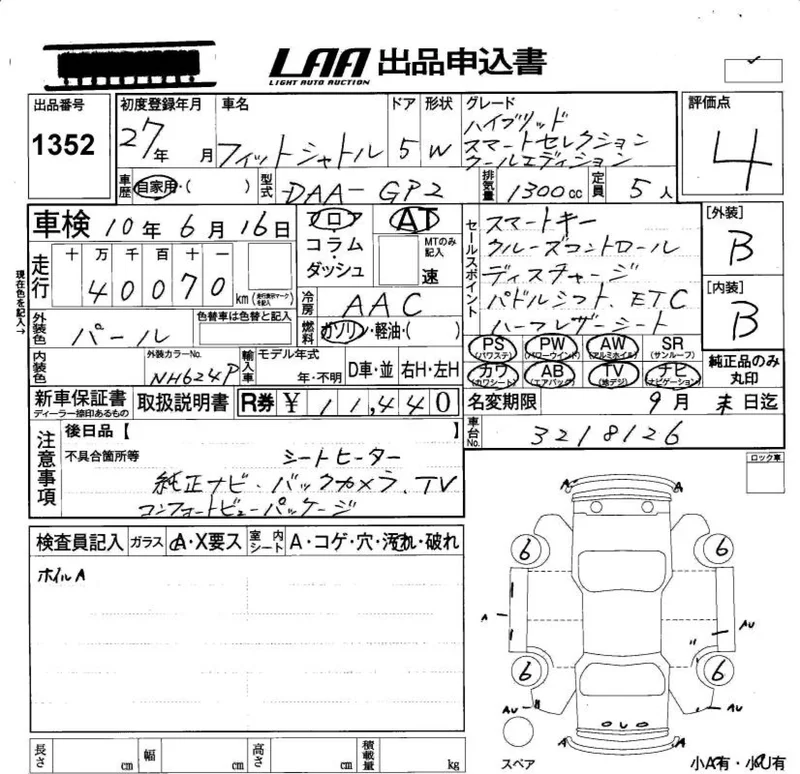 LAA 出品申込書
LIGHT AUTO AUCTION
出品番号
1352
初度登録年月
27年 月
車名
フィットシャトル
ドア
5
形状
W
グレード
ハイブリッド
スマートセレクション
クールエディション
評価点
4
車歴
自家用・( )
型式
DAA-GP2
排気量
1300cc
定員
5人
車検 10年6月16日
フロ・
コラム・
ダッシュ
AT
MTのみ記入
速
セールスポイント
スマートキー
クルーズコントロール
ディスチャージ
パドルシフト、ETC
ハーフレザーシート
[外装]
B
[内装]
B
現在色を記入→
走行
十 万 千 百 十 一
4 0 0 7 0 km
(走行表示マークを記入)
冷房
AAC
外装色
パール
色替車は色替と記入
燃料
ガソリン・軽油・( )
PS (パワステ)
PW (パワーウインド)
AW (アルミホイル)
SR (サンルーフ)
カワ (カワシート)
AB (エアバック)
TV (地デジ)
ナビ (ナビゲーション)
純正品のみ丸印
内装色
外装カラーNo.
NH624P
輸入車
モデル年式
年・不明
D車・並
右H・左H
新車保証書
ディーラー捺印あるもの
取扱説明書
R券 ¥ 11,440
名変期限 9月 末日迄
車台No.
3218126
注意事項
後日品【 】
不具合箇所等
シートヒーター
純正ナビ・バックカメラ、TV
コンフォートビューパッケージ
ロック車
検査員記入
ガラス
A・X要ス
室内シート
A・コゲ・穴・汚れ・破れ
ホイルA
A A
6 6
A AU
6 6
AU AU
A A
スペア
小A有・小U有
長さ cm
幅 cm
高さ cm
積載量 kg